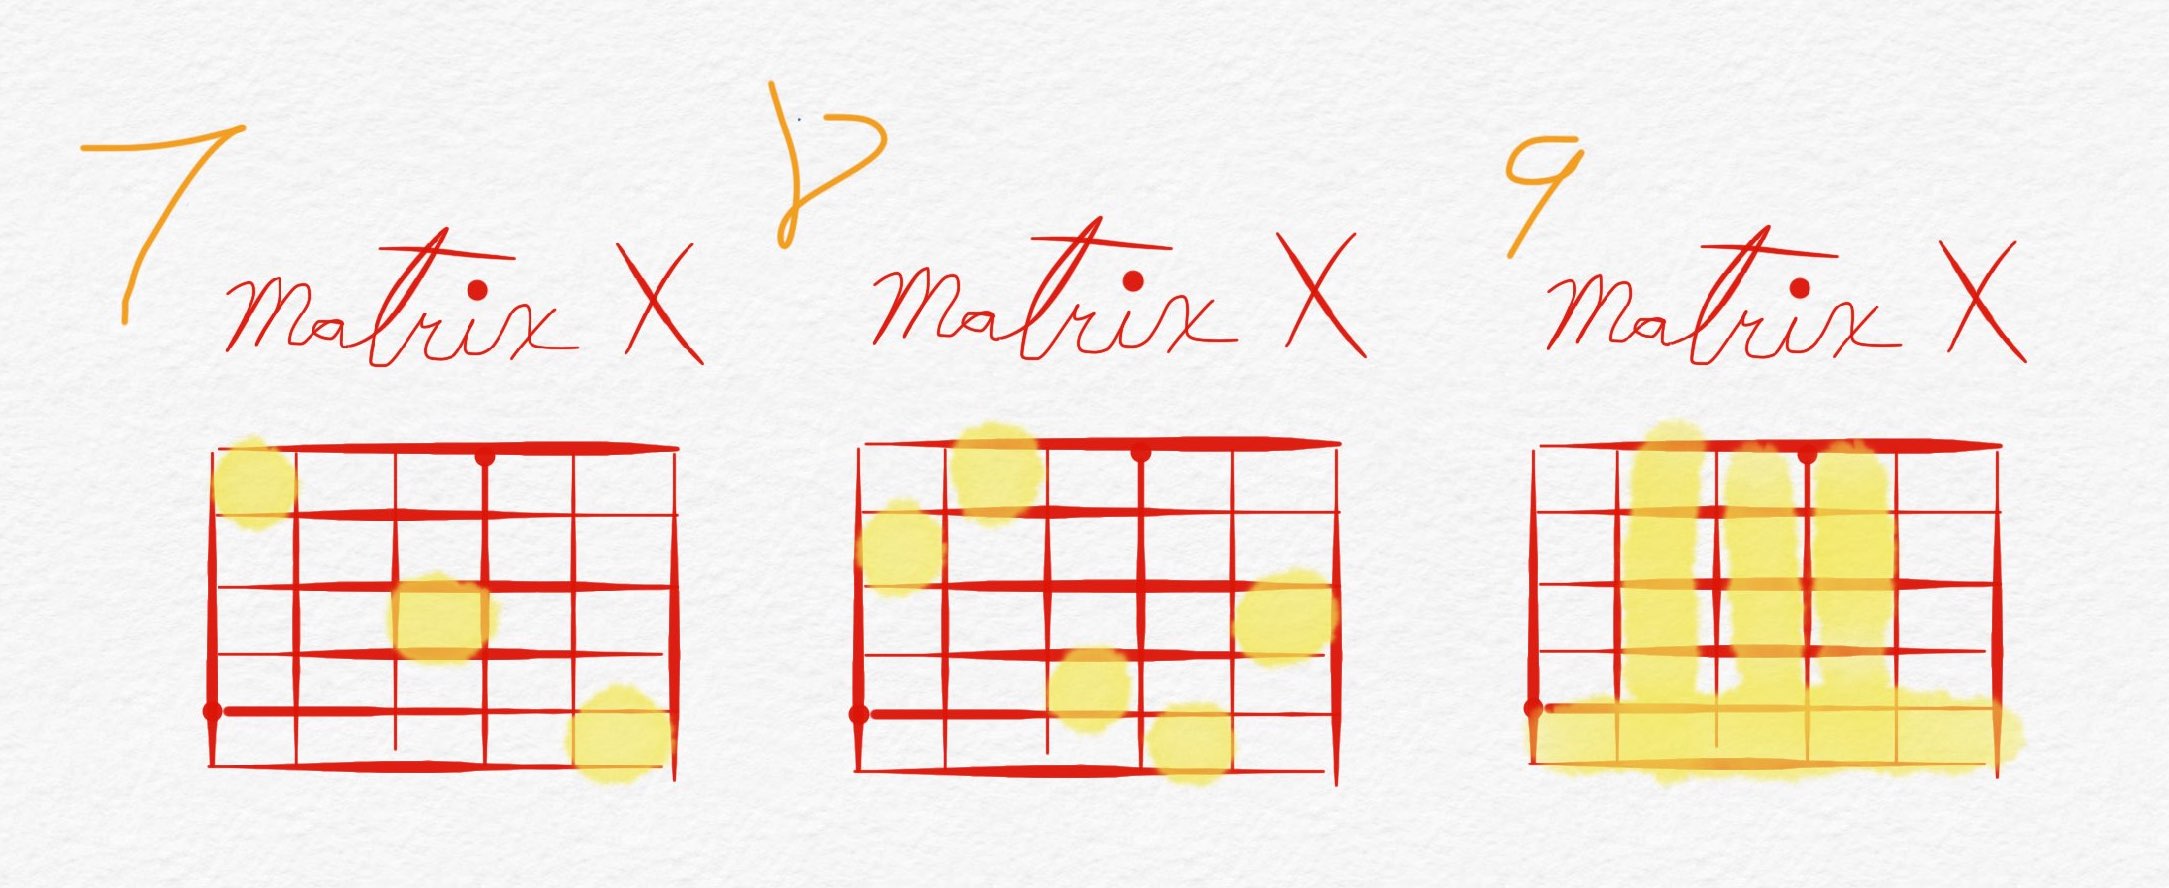 7
8
9
Matrix X
Matrix X
Matrix X